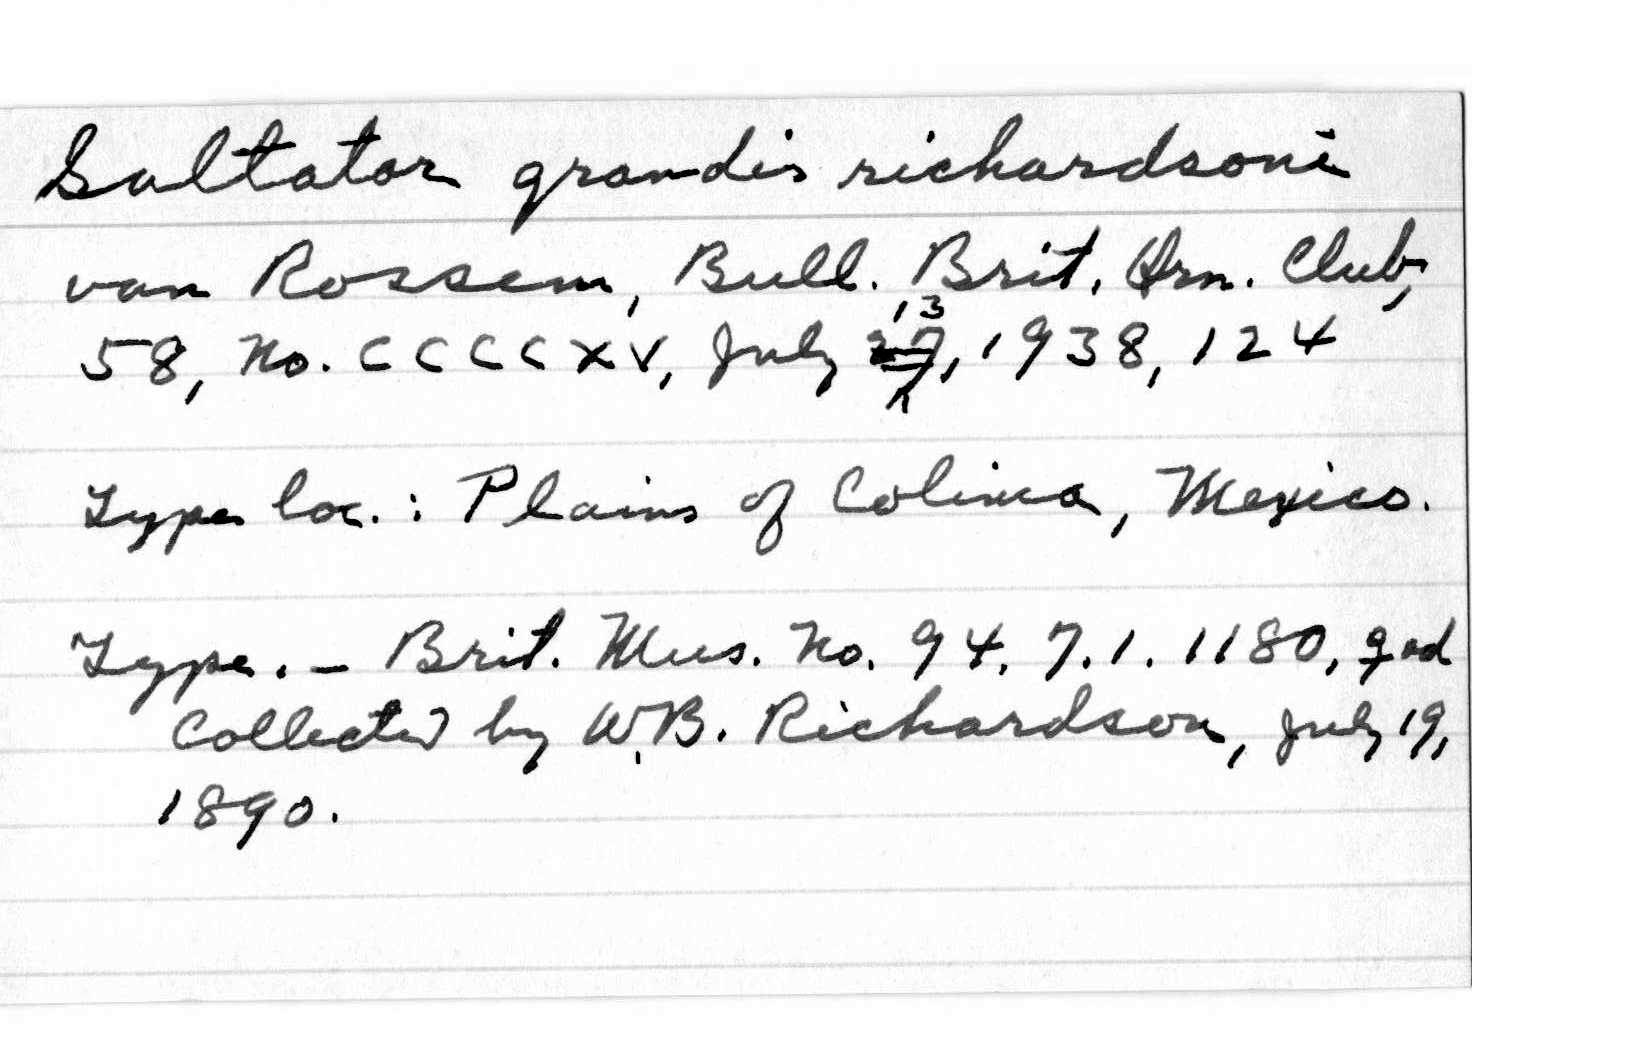 Saltator grandis richardsoni
van Rossem, Bull. Brit. Orn. Club,
58, No. CCCCXV, July 13, 1938, 124
Type loc.: Plains of Colima, Mexico.
Type. – Brit. Mus. No. 94.7.1.1180, ♀ ad
collected by W.B. Richardson, July 19,
1890.